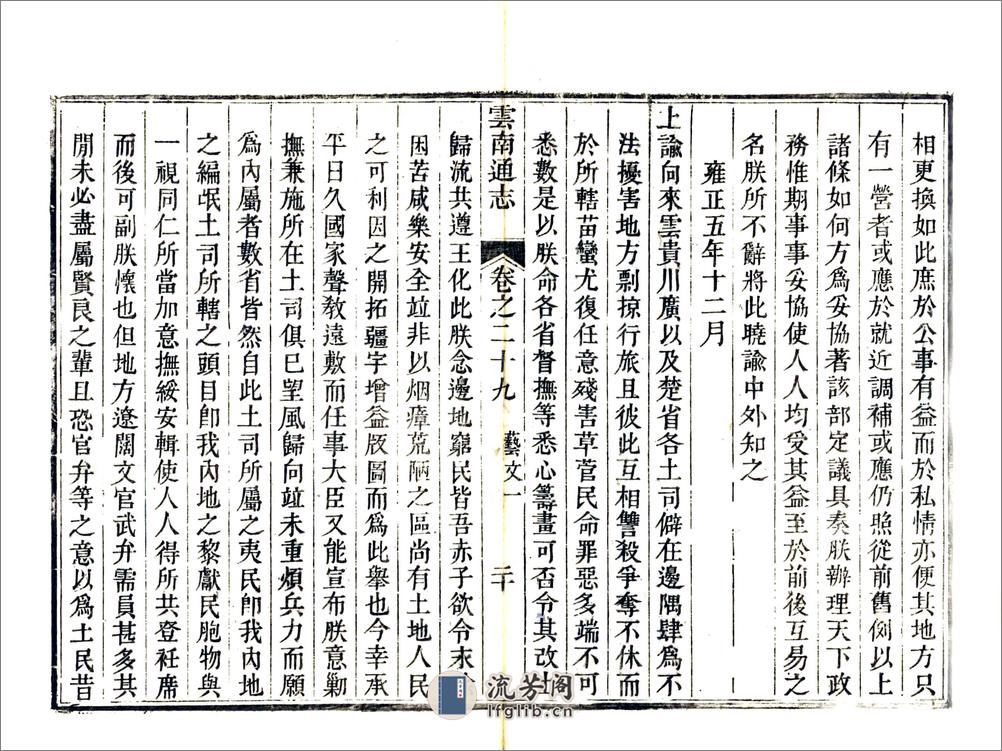 相更換如此庶於公事有益而於私情亦便其地方只
有一營者或應於就近調補或應仍照從前舊例以上
諸條如何方爲妥協著該部定議具奏朕辦理天下政
務惟期事事妥協使人人均受其益至於前後互易之
名朕所不辭將此曉諭中外知之
雍正五年十二月
上諭向來雲貴川廣以及楚省各土司僻在邊隅肆爲不
法擾害地方剽掠行旅且彼此互相讐殺爭奪不休而
於所轄苗蠻尤復任意殘害草菅民命罪惡多端不可
悉數是以朕命各省督撫等悉心籌畫可否令其改土
雲南通志
卷之二十九
藝文一
二十
歸流共遵王化此朕念邊地窮民皆吾赤子欲令永
困苦咸樂安全竝非以烟瘴荒陋之區尚有土地人民
之可利因之開拓疆宇增益版圖而爲此舉也今幸承
平日久國家聲教遠敷而任事大臣又能宣布朕意勦
撫兼施所在土司俱已望風歸向竝未重煩兵力而願
爲內屬者數省皆然自此土司所屬之夷民卽我內地
之編氓土司所轄之頭目卽我內地之黎獻民胞物與
一視同仁所當加意撫綏安輯使人人得所共登衽席
而後可副朕懷也但地方遼闊文官武弁需員甚多其
間未必盡屬賢良之輩且恐官弁等之意以爲土民昔
流芳阁
lfglib.cn